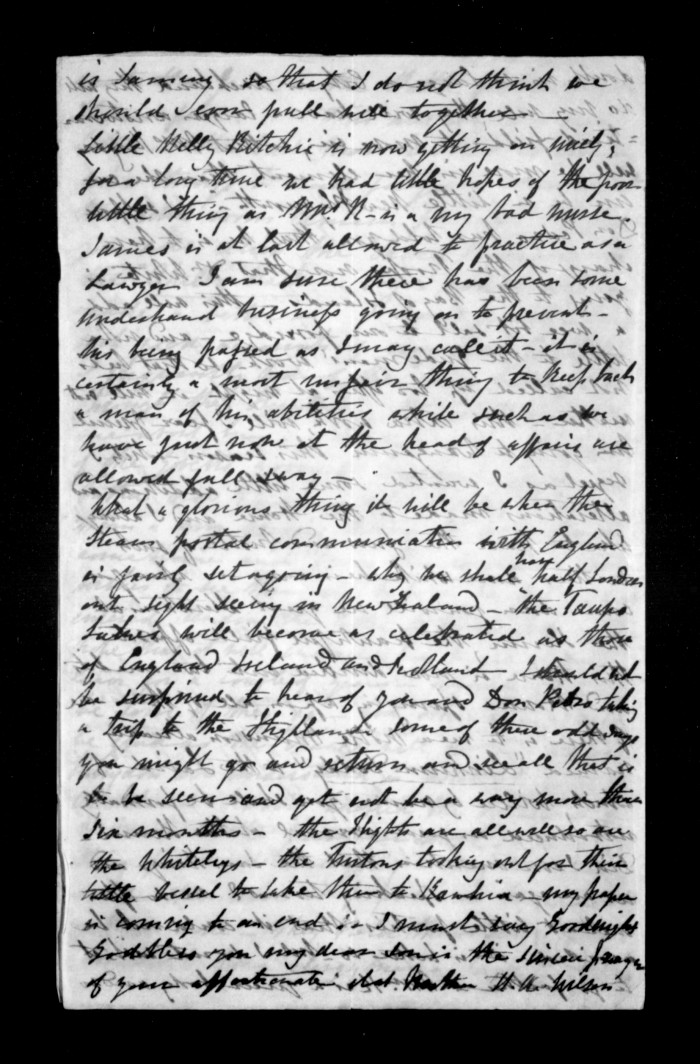 is Taming so that I do not think we
should soon pull well together —
Little Nelly Ritchie is now getting on nicely,
for a long time we had little hopes of the poor
little thing as Mrs R - is a very bad nurse.
James is at last allowed to practice as a
Lawyer I am sure there has been some
underhand business going on to prevent -
his being passed as I may call it - it is
certainly a most unfair thing to keep back
a man of his abilities while such as we
have just now at the head of affairs are
allowed full sway -
What a glorious thing it will be when the
Steam postal communication with England
is fairly set agoing - why we shall have half London
out sight seeing in New Zealand - the Taupo
Lakes will become as celebrated as those
of England Ireland and Scotland I should not
be surprised to hear of you and Don Pedro taking
a trip to the Highlands some of these odd days
you might go and return and see all that is
to be seen and yet not be away more than
six months - the Hights are all well so are
the Whiteleys - the Turtons looking out for their
little vessel to take them to Kawhia - my paper
is coming to an end so I must say Goodnight
God bless you my dear Son is the sincere prayer
of your affectionate Mother H. A. Wilson